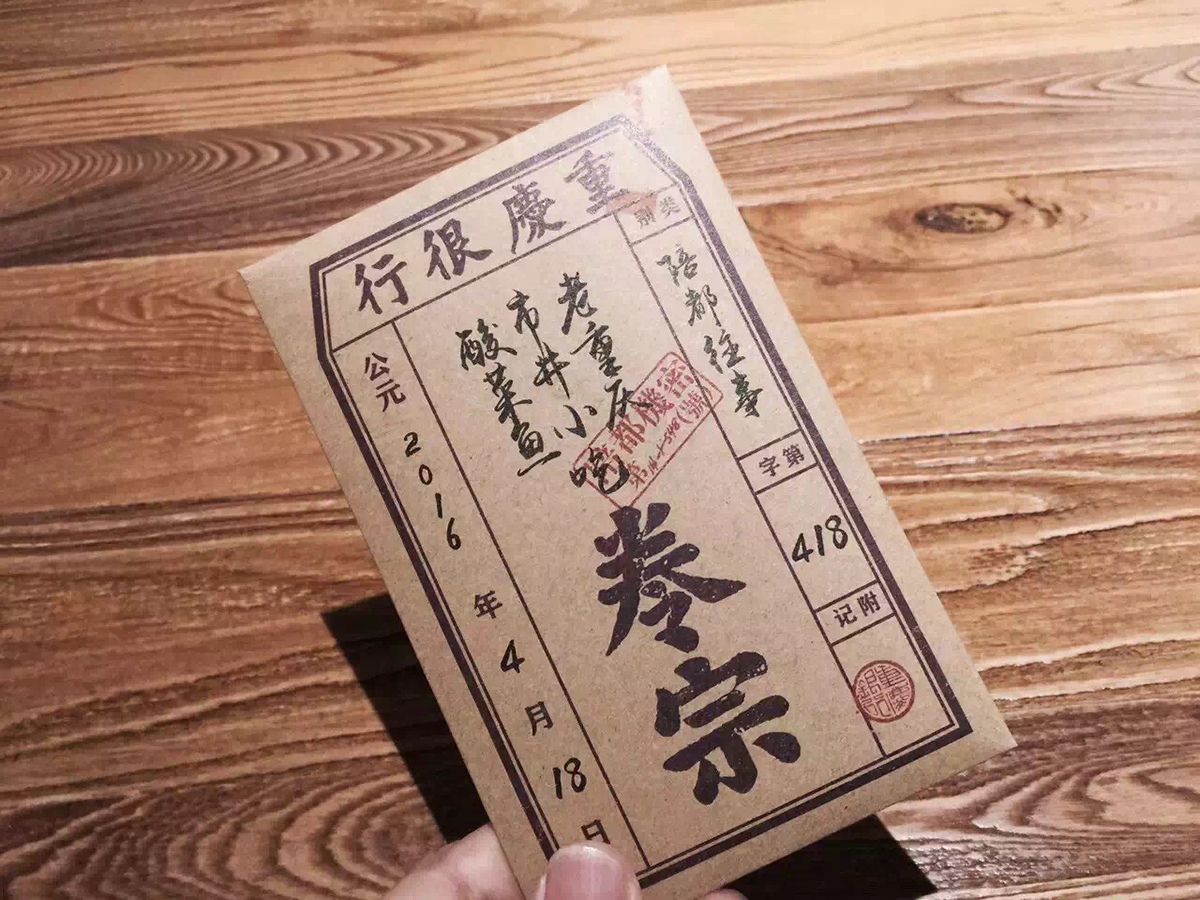 重慶很行
类别
陪都往事
第字
418
附记
老重庆
市井小吃
酸菜鱼
都機密
卷宗
公元2016年4月18日